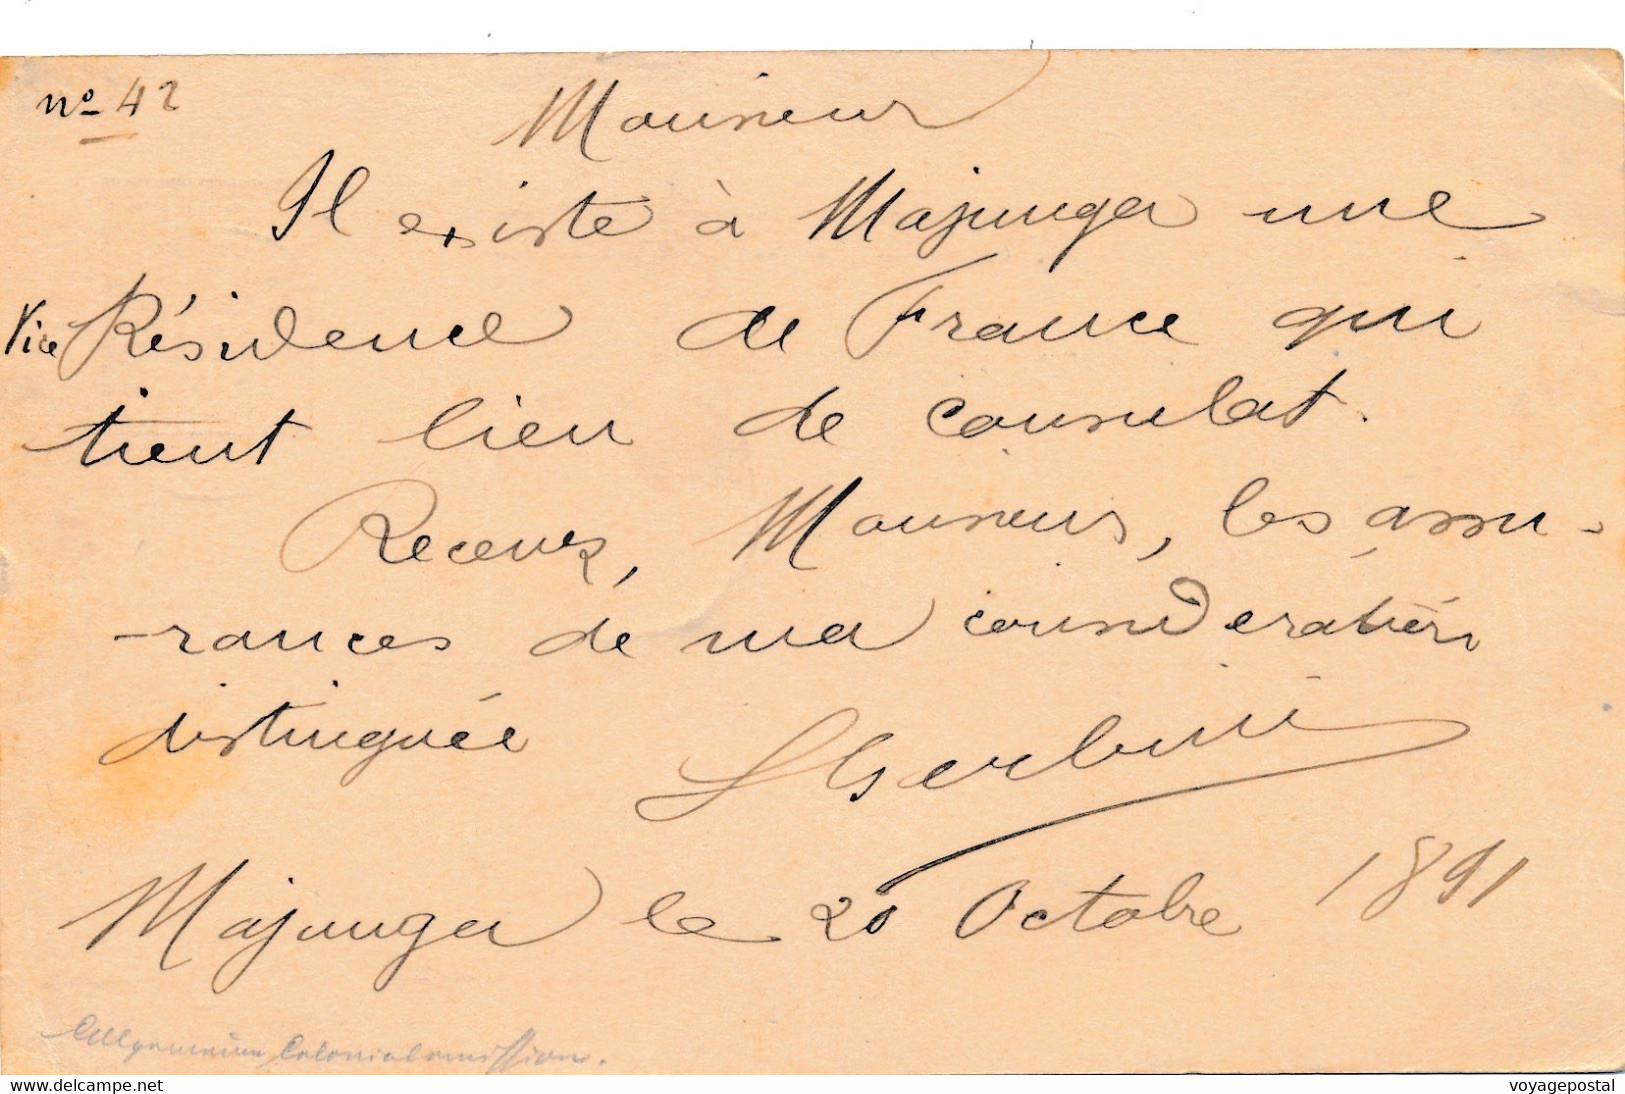 no 42
Monsieur
Il existe à Majunga une
Vice Résidence de France qui
tient lieu de consulat.
Recevez, Monsieur, les assu-
-rances de ma considération
distinguée
Majunga le 20 Octobre 1891
Colonial
delcampe.net
voyagepostal